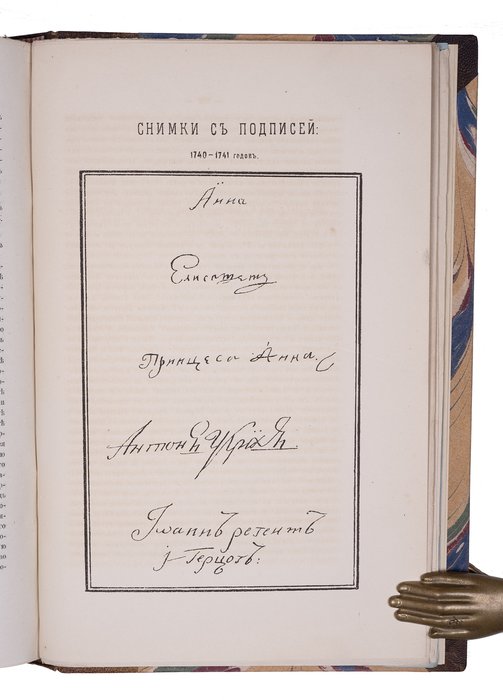 СНИМКИ СЪ ПОДПИСЕЙ:
1740—1741 годовъ.
Анна
Елисаветъ
Принцеса Анна.
Антонъ Улрихъ
Iоаннъ регентъ
i Герцогъ: